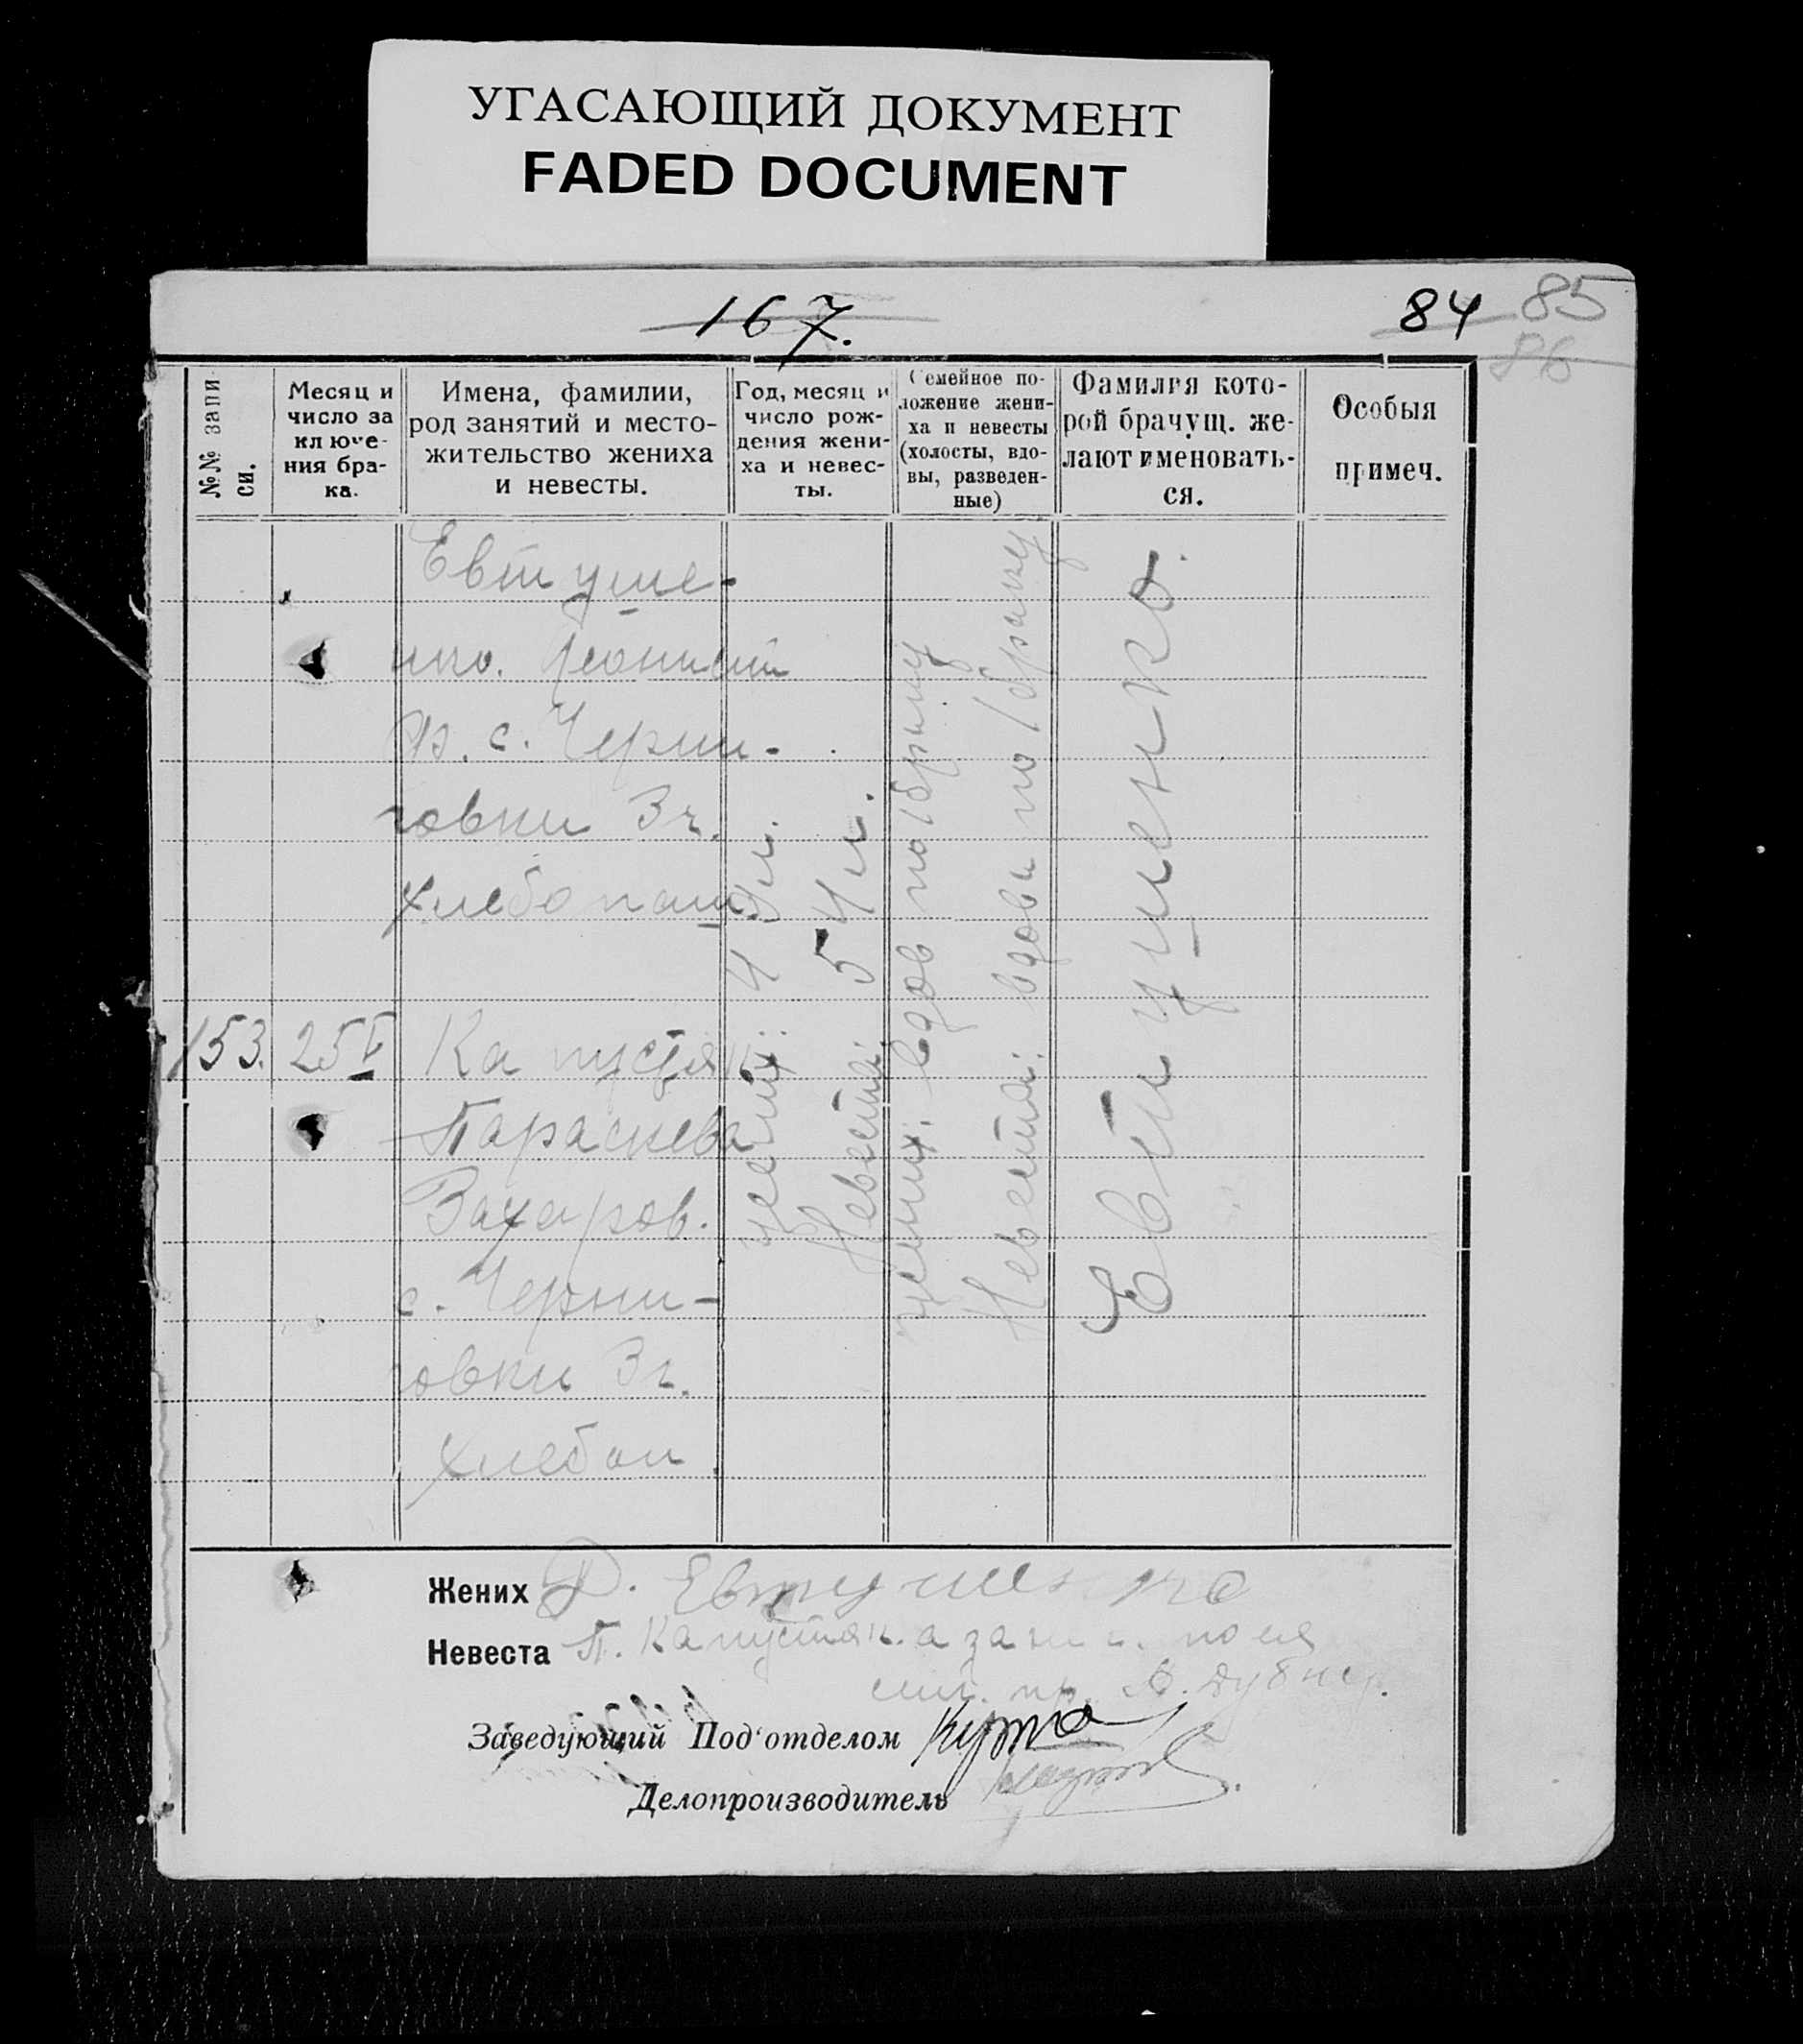 УГАСАЮЩИЙ ДОКУМЕНТ
FADED DOCUMENT
167.
84 85
86
№№ запи
си.
Месяц и
число за
ключе-
ния бра-
ка.
Имена, фамилии,
род занятий и место-
жительство жениха
и невесты.
Год, месяц и
число рож-
дения жени-
ха и невес-
ты.
Семейное по-
ложение жени-
ха и невесты
(холосты, вдо-
вы, разведен-
ные)
Фамилия кото-
рой брачущ. же-
лают именовать-
ся.
Особыя
примеч.
Евтуше-
нко.
Ф. с. Черни-
говки 3 г.
хлебопаш
153. 25 V
Капустян
Параскева
Захаров.
с. Черни-
говки 3 г.
хлебоп.
Жених: 4 л.
Невеста: 54 л.
Жених: вдов по 1 браку
Невеста: вдова по 1 браку
Евтушенко.
Жених Д. Евтушенко
Невеста П. Капустян. а за не г. по ея
А. Дубн
Заведующий Под'отделом
Делопроизводитель